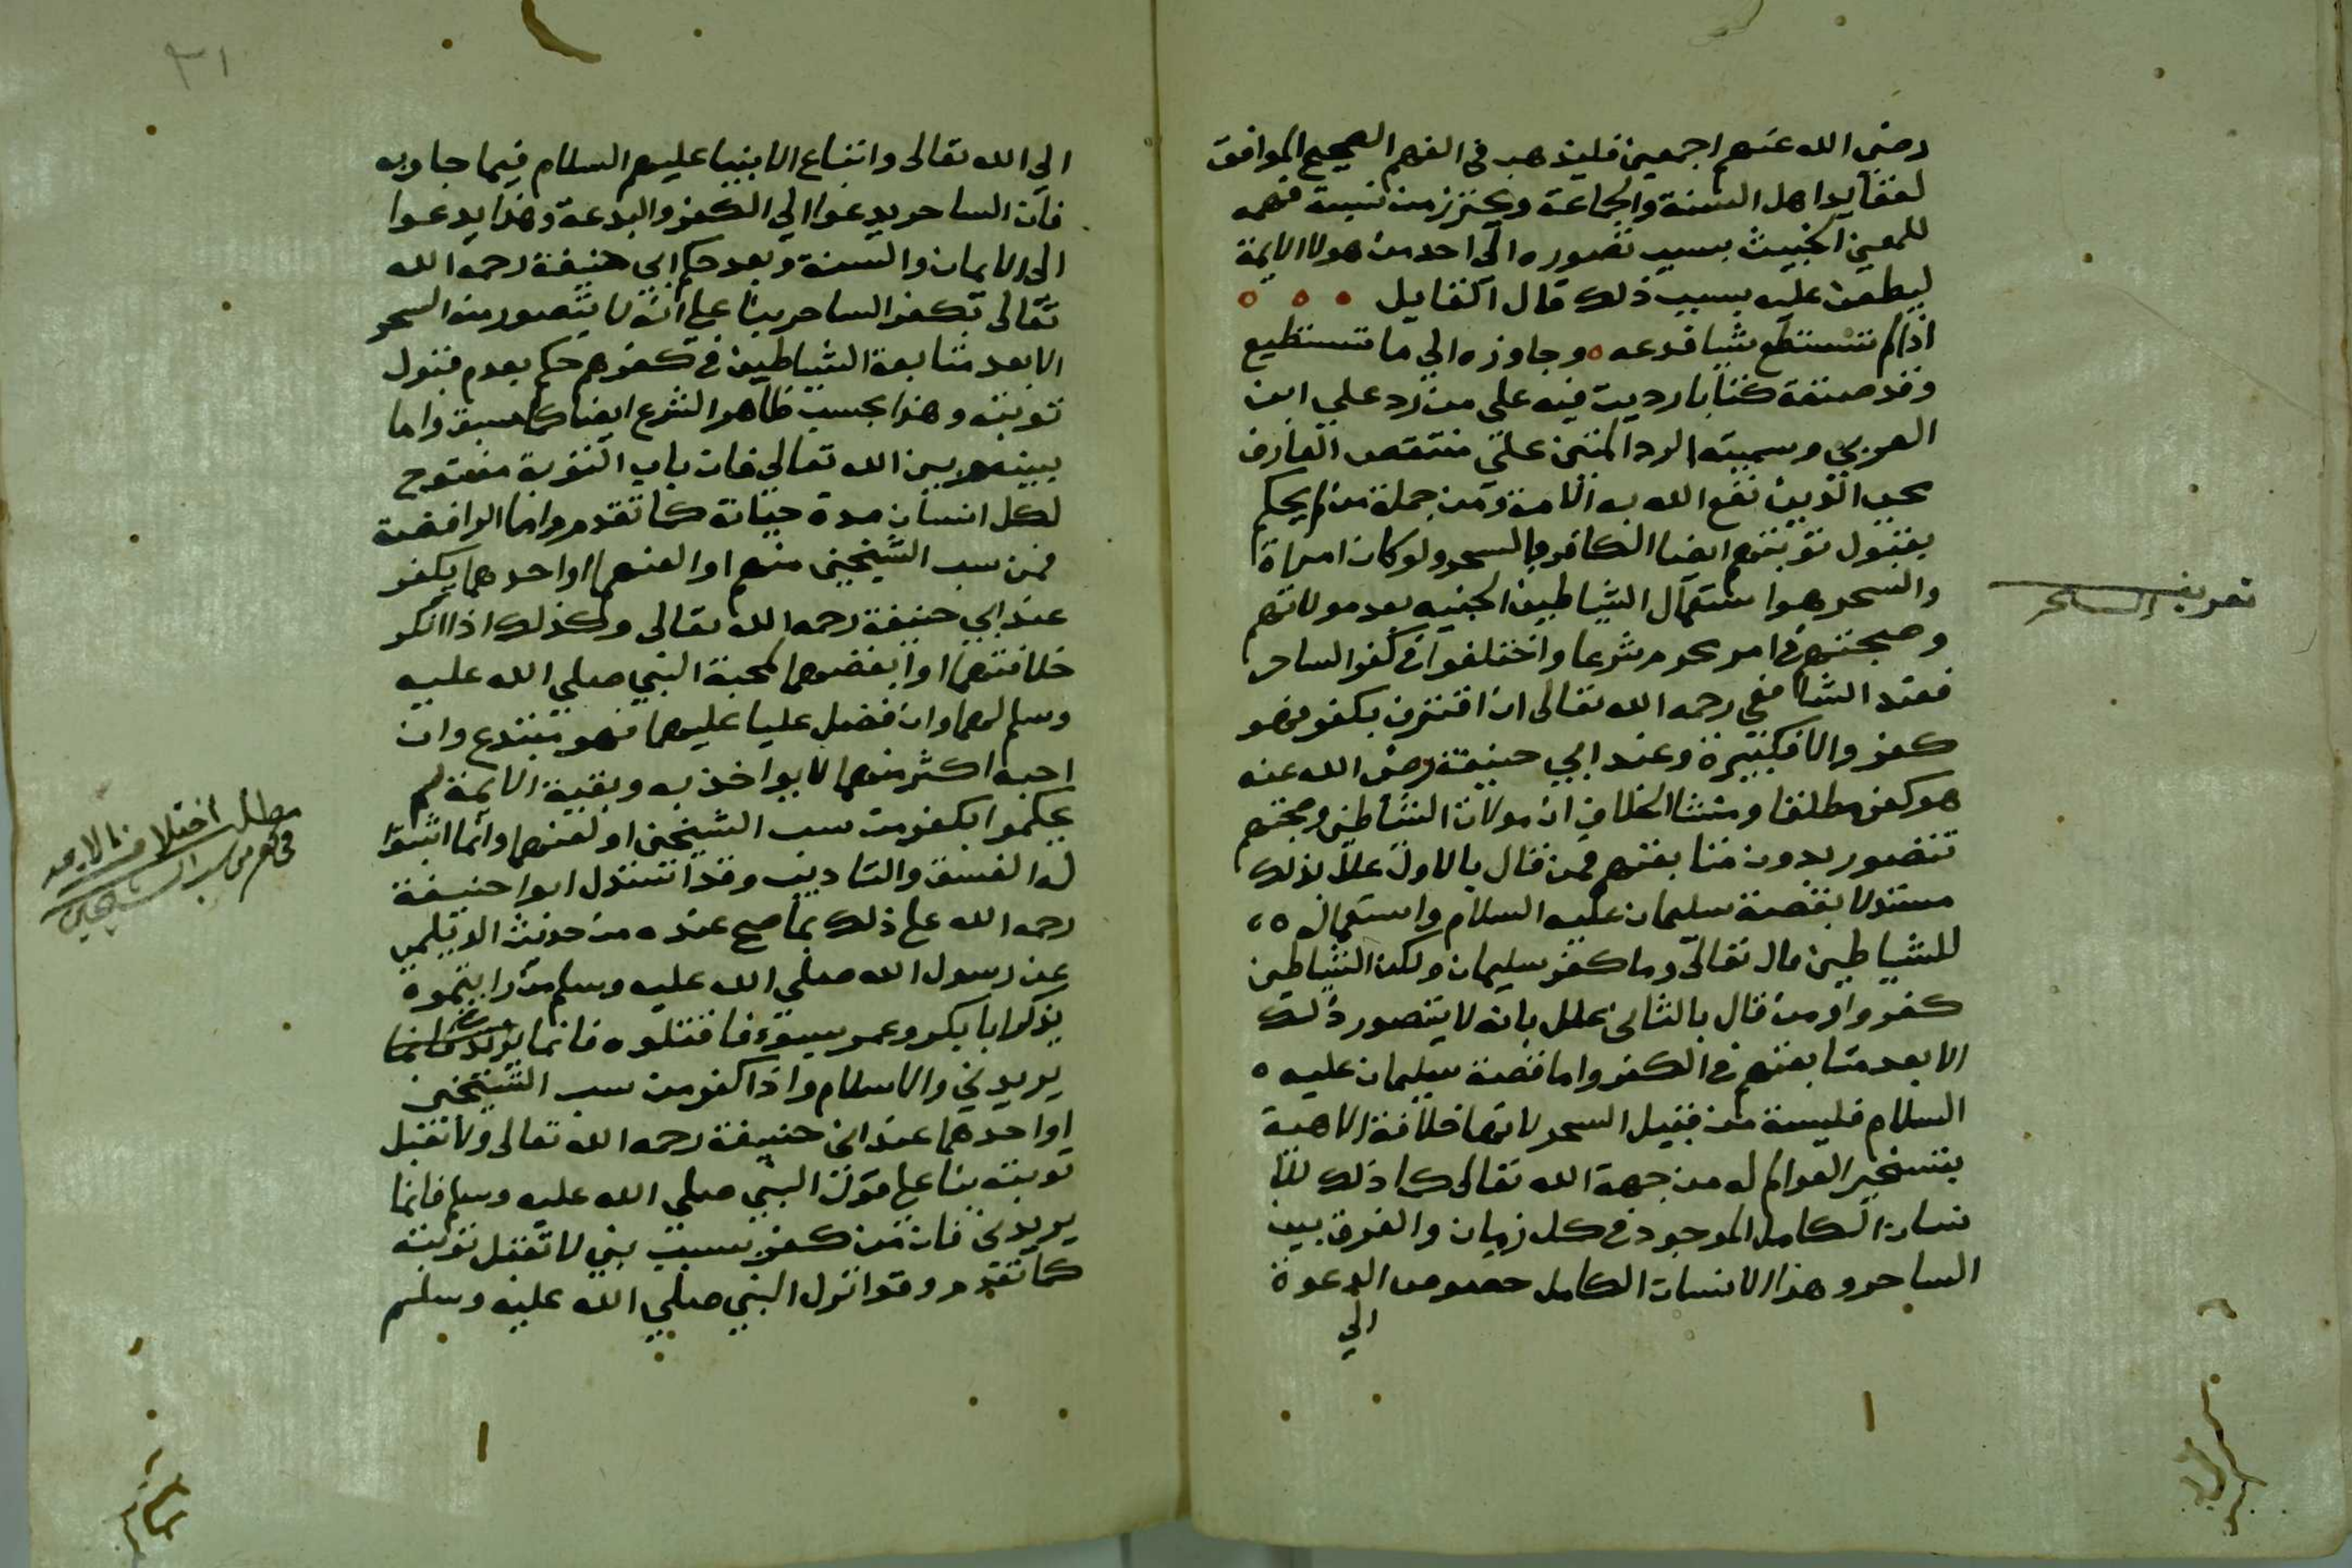 رضي الله عنهم اجمعين فليذهب في الفهم الصحيح الموافق
لعقايد اهل السنة والجماعة ويحترز من نسبة فهمه
للمعين الخبيث بسبب تصوره الى احد من هولا الايمة
ليطعن عليه بسبب ذلك قال القايل
اذا لم تستطع شيا فدعه وجاوزه الي ما تستطيع
وقد صنفة كتابا رديت فيه على من رد علي ابن
العربي وسميته الرد المتين علي منتقص العارف
محي الدين نفع الله به الامة ومن جملة من لم يحكم
بقبول توبتهم ايضا الكافر بالسحر ولو كان امراة
تعريف الساحر
والسحر هو استعمال الشياطين الجنيه بعد مولاتهم
وصحبتهم في امر محرم شرعا واختلفوا في كفر الساحر
فعند الشافعي رحمه الله تعالى ان اقترن بكفر فهو
كفر والا فكبيرة وعند ابي حنيفة رضي الله عنه
هو كفر مطلقا ومنشا الخلاف ان مولات الشياطين وصحبتهم
تتصور بدون متابعتهم فمن قال بالاول علل بذلك
مستدلا بقصة سليمان عليه السلام واستعماله
للشياطين قال تعالى وما كفر سليمان ولكن الشياطين
كفروا ومن قال بالثاني علل بانه لا يتصور ذلك
الا بعد متابعتهم في الكفر واما قصة سليمان عليه
السلام فليسة من قبيل السحر لانها خلافة الاهية
بتسخير العوالم له من جهة الله تعالى كما ذلك للا
نسان الكامل الموجود في كل زمان والفرق بين
الساحر وهذا الانسان الكامل خصوص الدعوة
الي
٣١
الي الله تعالى واتباع الانبيا عليهم السلام فيما جاو به
فان الساحر يدعوا الي الكفر والبدعة وهذا يدعوا
الى الايمان والسنة وبعد حكم ابي حنيفة رحمه الله
تعالى بكفر الساحر بنا على انه لا يتصور منه السحر
الا بعد متابعة الشياطين في كفرهم حكم بعدم قبول
توبته وهذا بحسب ظاهر الشرع ايضا كما سبق واما
بينه وبين الله تعالى فان باب التوبة مفتوح
لكل انسان مدة حياته كما تقدم واما الرافضة
فمن سب الشيخين منهم او العنهما او احدهما يكفر
عند ابي حنيفة رحمه الله تعالى وكذلك اذا انكر
خلافتهما او ابغضهما لمحبة النبي صلي الله عليه
وسلم لهما وان فضل عليا عليهما فهو مبتدع وان
احبه اكثر منهما لا يواخذ به وبقية الايمة لم
يحكموا بكفر من سب الشيخين او لعنهما وانما اثبتوا
مطلب اختلاف الايمه
في كفر من سب الشيخين
له الفسق والتاديب وقد استدل ابوا حنيفة
رحمه الله على ذلك بما صح عنده من حديث الديلمي
عن رسول الله صلي الله عليه وسلم من رايتموه
يذكر ابا بكر وعمر بسوء فاقتلوه فانما يريد فانما
يريدني والاسلام واذا كفر من سب الشيخين
او احدهما عند ابي حنيفة رحمه الله تعالى ولا تقبل
توبته بنا على قول النبي صلي الله عليه وسلم فانما
يريدني فان من كفر بسبب نبي لا تقبل توبته
كما تقدم وقوا نزل النبي صلي الله عليه وسلم